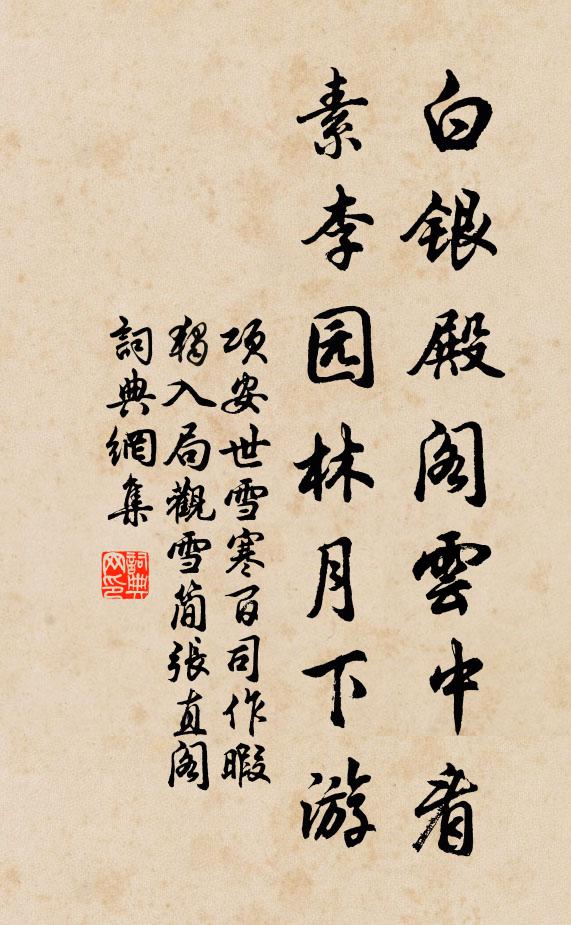 白銀殿阁雲中看
素李园林月下游
項安世雪寒百司作暇
獨入局觀雪简張直阁
詞典網集
詞典
网印